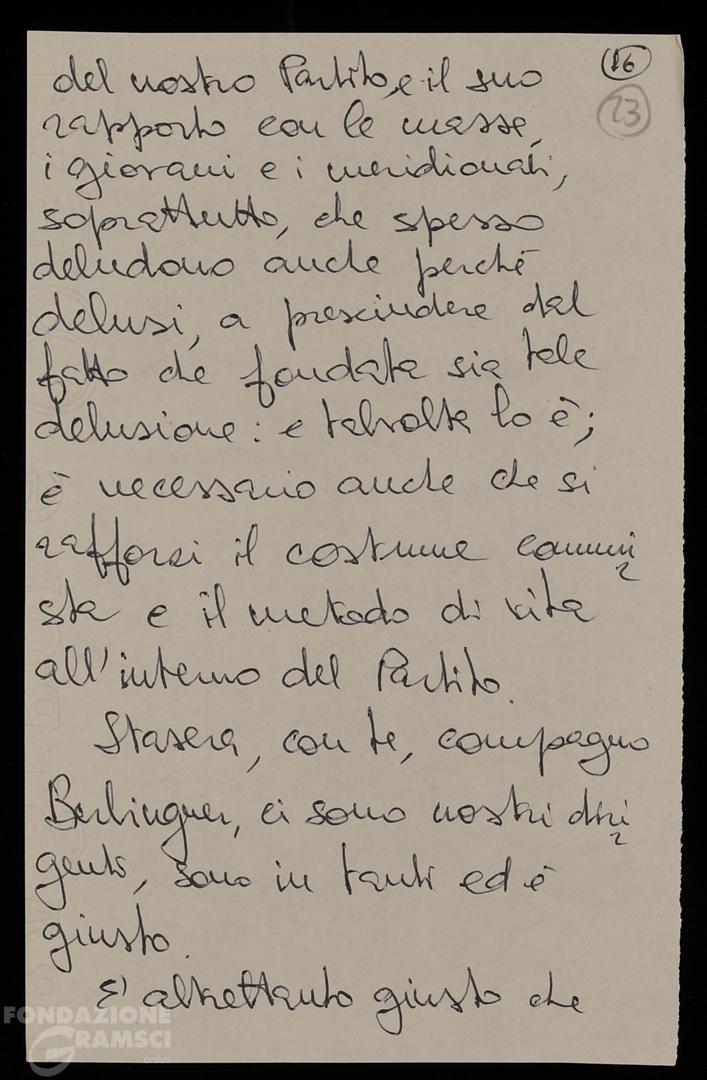 16
23
del nostro Partito, e il suo
rapporto con le masse,
i giovani e i meridionali,
soprattutto, che spesso
deludono anche perché
delusi, a prescindere dal
fatto che fondata sia tale
delusione: e talvolta lo è;
è necessario anche che si
rafforzi il costume comuni
sta e il metodo di vita
all'interno del Partito.
Stasera, con te, compagno
Berlinguer, ci sono nostri diri
genti, sono in tanti ed è
giusto.
E' altrettanto giusto che
FONDAZIONE
GRAMSCI
onlus